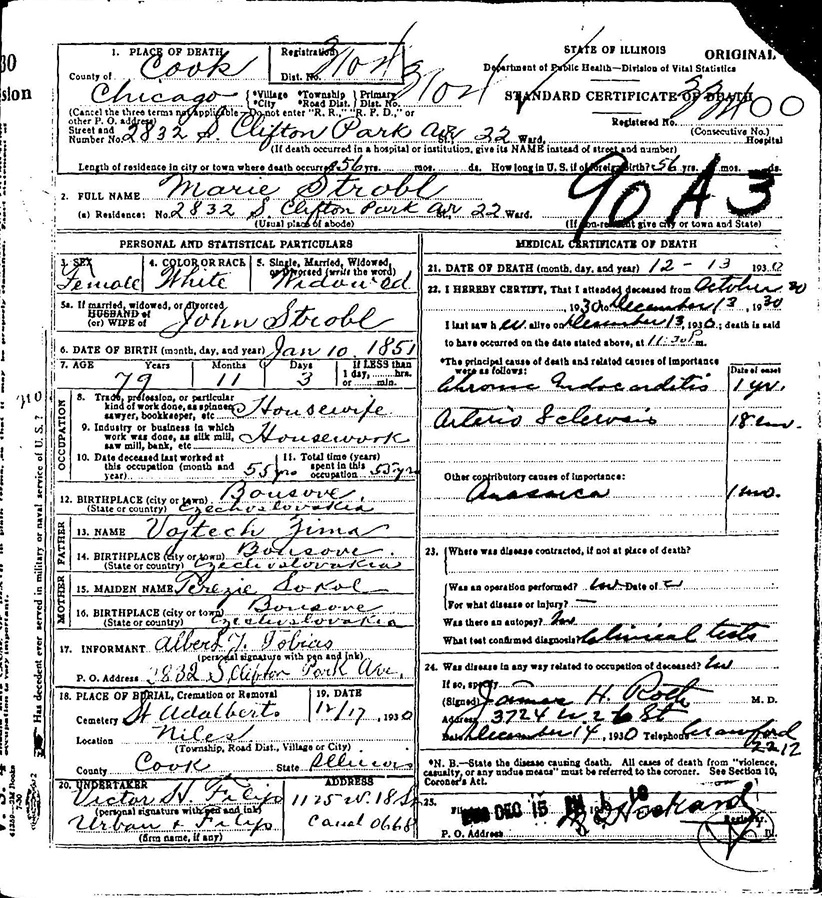 STATE OF ILLINOIS
ORIGINAL
Department of Public Health—Division of Vital Statistics
STANDARD CERTIFICATE OF DEATH
Registered No.
(Consecutive No.)
1. PLACE OF DEATH
Registration
Dist. No. 3104
County of Cook
Chicago
*Village *Township Primary 3104
*City *Road Dist. Dist. No.
(Cancel the three terms not applicable—Do not enter "R. R.," "R. F. D.," or other P. O. address)
Street and Number No. 2832 S. Clifton Park Av St., 22 Ward, Hospital
(If death occurred in a hospital or institution, give its NAME instead of street and number)
Length of residence in city or town where death occurred 56 yrs. mos. ds. How long in U. S. if of foreign birth? 56 yrs. mos. ds.
90 A 3
2. FULL NAME Marie Strobl
(a) Residence: No. 2832 S. Clifton Park Av 22 Ward.
(Usual place of abode) (If non-resident give city or town and State)
PERSONAL AND STATISTICAL PARTICULARS
3. SEX 4. COLOR OR RACE 5. Single, Married, Widowed,
or Divorced (write the word)
Female White Widowed
5a. If married, widowed, or divorced
HUSBAND of
(or) WIFE of John Strobl
6. DATE OF BIRTH (month, day, and year) Jan 10. 1851
7. AGE Years Months Days If LESS than
1 day, hrs.
or min.
79 11 3
OCCUPATION
8. Trade, profession, or particular
kind of work done, as spinner,
sawyer, bookkeeper, etc Housewife
9. Industry or business in which
work was done, as silk mill,
saw mill, bank, etc Housework
10. Date deceased last worked at
this occupation (month and
year) 55 yrs
11. Total time (years)
spent in this
occupation 55 yrs
12. BIRTHPLACE (city or town) Bousove
(State or country) Czechslovakia
FATHER
13. NAME Vojtech Zima
14. BIRTHPLACE (city or town) Bousove
(State or country) Czechslovakia
MOTHER
15. MAIDEN NAME Terezie Sokol
16. BIRTHPLACE (city or town) Bousove
(State or country) Czechslovakia
17. INFORMANT Albert J. Tobias
(personal signature with pen and ink)
P. O. Address 2832 S Clifton Park Ave.
18. PLACE OF BURIAL, Cremation or Removal 19. DATE
Cemetery St Adalberts 12/17, 1930
Location Niles
(Township, Road Dist., Village or City)
County Cook State Illinois
20. UNDERTAKER ADDRESS
Victor H. Filip 1125 W. 18 St
(personal signature with pen and ink)
Urban & Filip Canal 0668
(firm name, if any)
MEDICAL CERTIFICATE OF DEATH
21. DATE OF DEATH (month, day, and year) 12-13 1930
22. I HEREBY CERTIFY, That I attended deceased from October 30
1930 to December 13, 1930
I last saw her alive on December 13, 1930; death is said
to have occurred on the date stated above, at 11:30 P.m.
*The principal cause of death and related causes of importance
were as follows: Date of onset
Chronic Endocarditis 1 yr.
Arterio Sclerosis
Other contributory causes of importance:
Anasarca 1 mo.
23. Where was disease contracted, if not at place of death?
Was an operation performed? no Date of
For what disease or injury? —
Was there an autopsy? no
What test confirmed diagnosis? Clinical tests
24. Was disease in any way related to occupation of deceased? no
If so, specify
(Signed) James H. Roth M. D.
Address 3724 W 26 St
Date December 14, 1930 Telephone Crawford
2212
*N. B.—State the disease causing death. All cases of death from "violence,
casualty, or any undue means" must be referred to the coroner. See Section 10,
Coroner's Act.
25.
Filed DEC 15
P. O. Address
Has decedent ever served in military or naval service of U. S.?